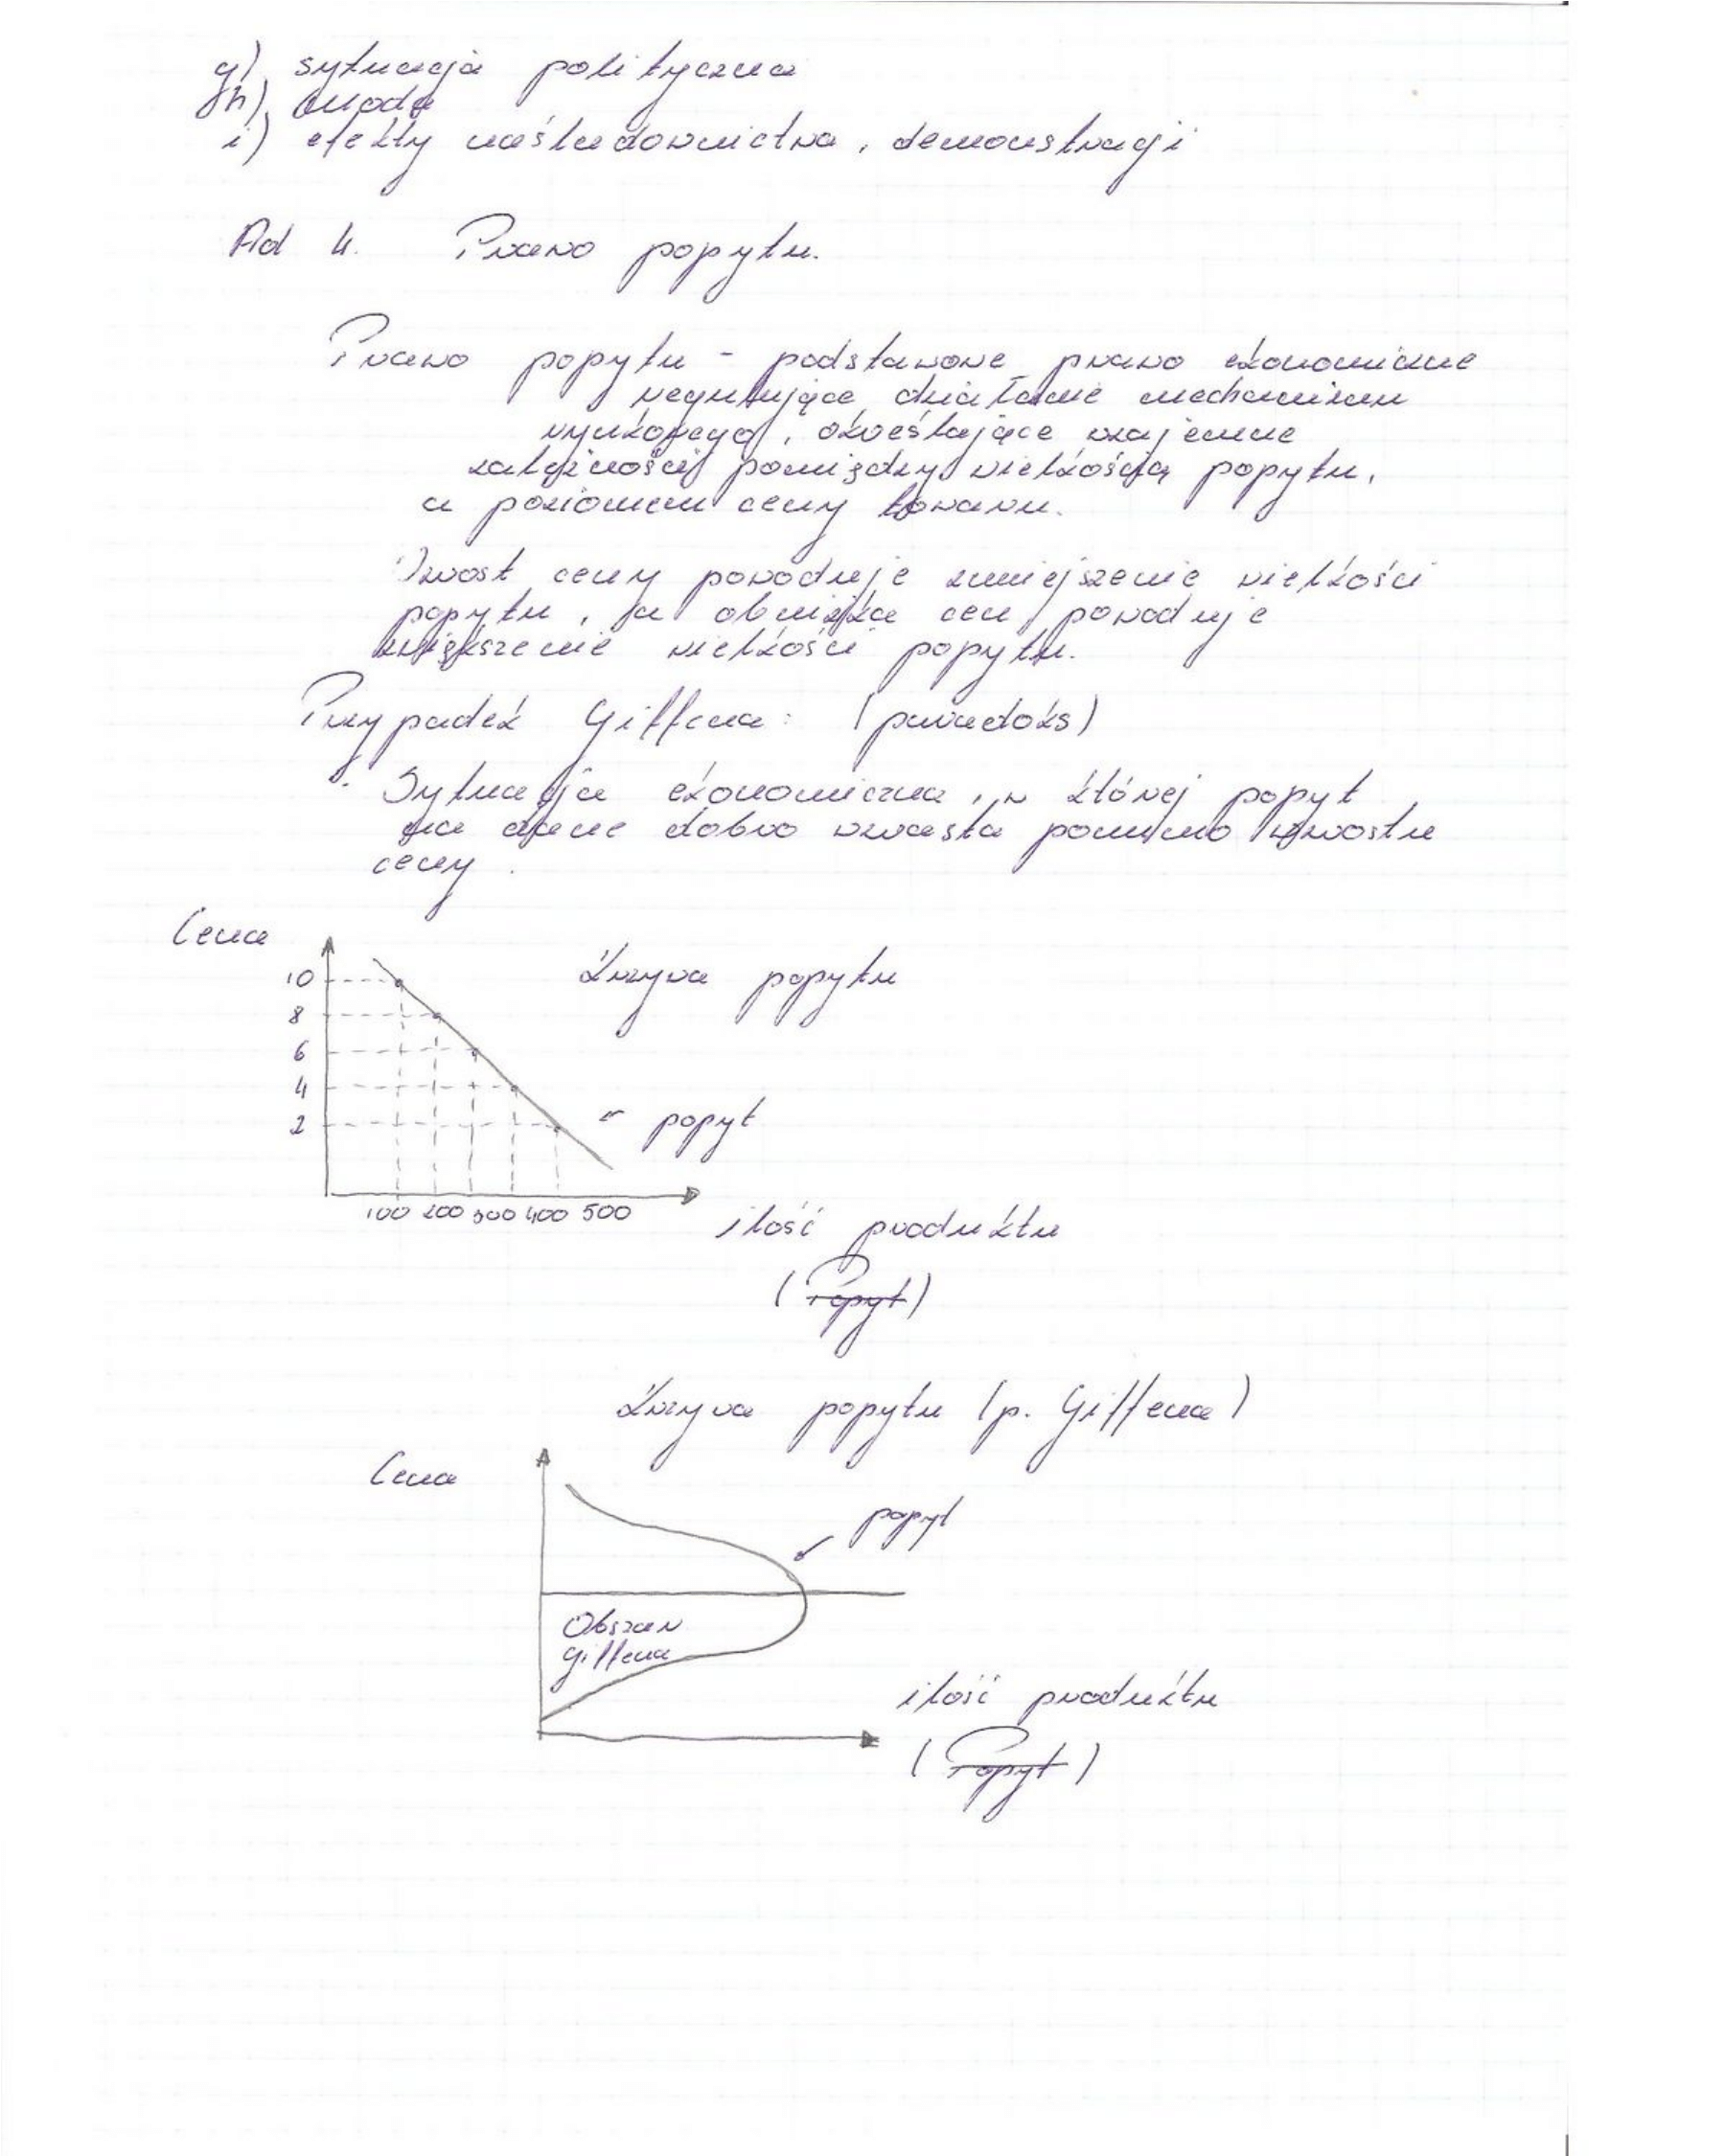 g) sytuacja polityczna
h) moda
i) efekty naśladownictwa, demonstracji
Ad 4. Prawo popytu.
Prawo popytu - podstawowe prawo ekonomiczne
regulujące działanie mechanizmu
rynkowego, określające wzajemne
zależności pomiędzy wielkością popytu,
a poziomem ceny towaru.
Wzrost ceny powoduje zmniejszenie wielkości
popytu, a obniżka cen powoduje
zwiększenie wielkości popytu.
Przypadek Giffena: (paradoks)
Sytuacja ekonomiczna, w której popyt
na dane dobro wzrasta pomimo wzrostu
ceny.
Cena
Krzywa popytu
10
8
6
4
2
popyt
100 200 300 400 500
ilość produktu
(Popyt)
Krzywa popytu (p. Giffena)
Cena
popyt
Obszar
Giffena
ilość produktu
(Popyt)